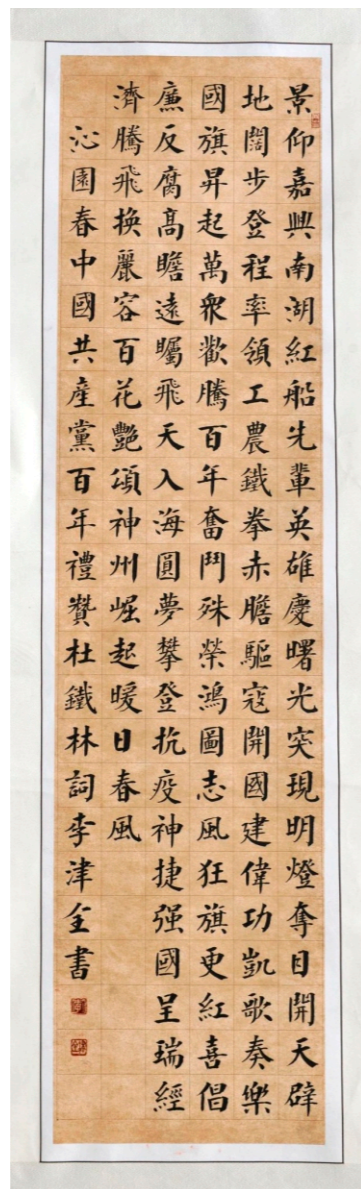 景仰嘉興南湖紅船先輩英雄慶曙光突現明燈奪目開天辟
地闊步登程率領工農鐵拳赤膽驅寇開國建偉功凱歌奏樂
國旗昇起萬衆歡騰百年奮鬥殊榮鴻圖志風狂旗更紅喜倡
廉反腐高瞻遠矚飛天入海圓夢攀登抗疫神捷强國呈瑞經
濟騰飛換麗容百花艷頌神州崛起暖日春風
沁園春中國共產黨百年禮贊杜鐵林詞李津全書